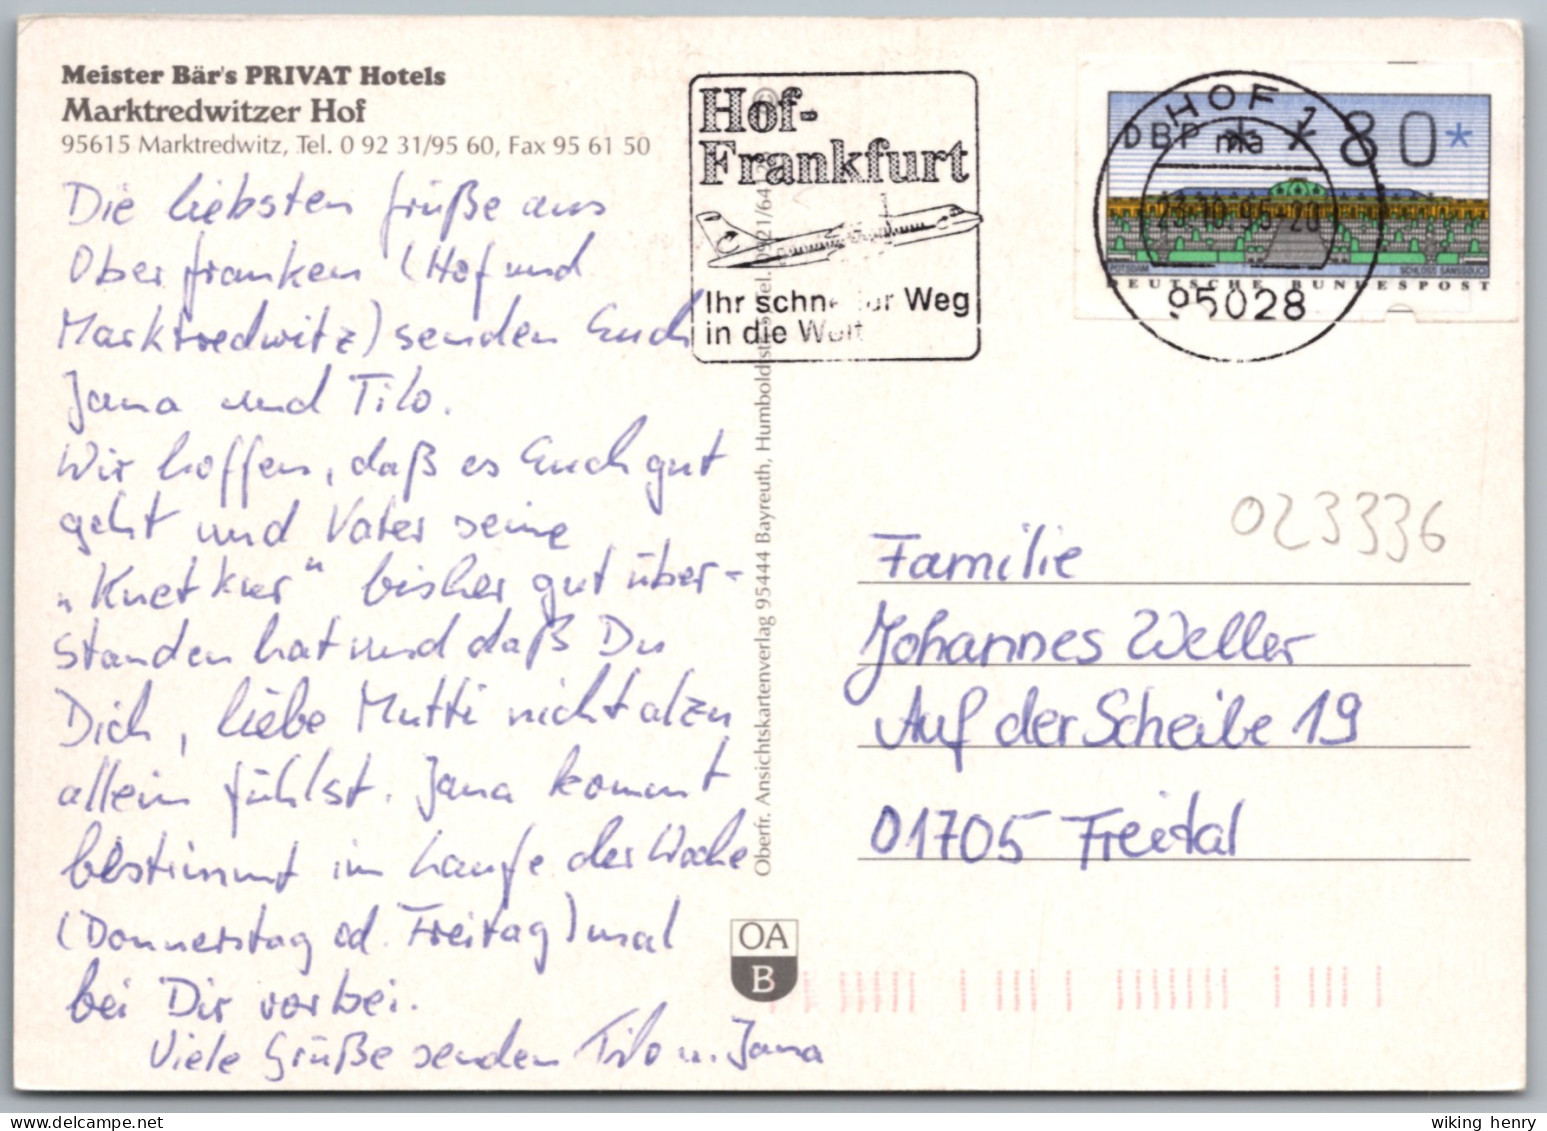 Meister Bär's PRIVAT Hotels
Marktredwitzer Hof
95615 Marktredwitz, Tel. 0 92 31/95 60, Fax 95 61 50
Die liebsten Grüße aus
Oberfranken (Hof und
Marktredwitz) senden Euch
Jana und Tilo.
Wir hoffen, daß es Euch gut
geht und Vater seine
„Knetkur" bisher gut über-
standen hat und daß Du
Dich, liebe Mutti nicht alzu
allein fühlst. Jana kommt
bestimmt im Laufe der Woche
(Donnerstag od. Freitag) mal
bei Dir vorbei.
Viele Grüße senden Tilo u. Jana
Hof-
Frankfurt
Ihr schneller Weg
in die Welt
Oberfr. Ansichtskartenverlag 95444 Bayreuth, Humboldtstr.
OA
B
HOF 1
DBP 80*
23.10.95-20
95028
POTSDAM SCHLOSS SANSSOUCI
DEUTSCHE BUNDESPOST
023336
Familie
Johannes Weller
Auf der Scheibe 19
01705 Freital
wiking henry